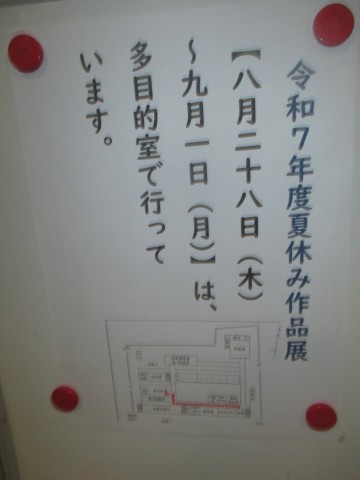 令和7年度夏休み作品展
【八月二十八日（木）
～九月一日（月）】は、
多目的室で行って
います。